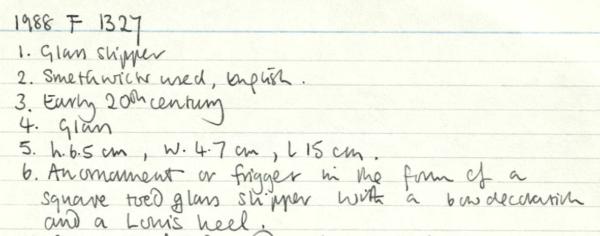 1988 F 1327
1. Glass slipper
2. Smethwick used, English.
3. Early 20th century
4. Glass
5. h. 6.5 cm, w. 4.7 cm, L 15 cm.
6. An ornament or frigger in the form of a
square toed glass slipper with a bow decoration
and a Louis heel.